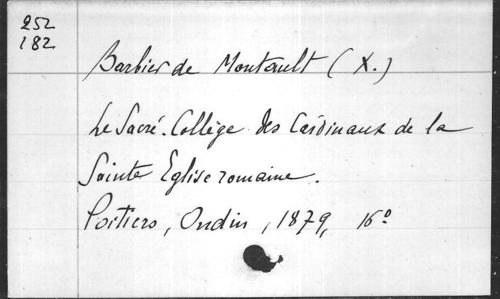 252
182
Barbier de Montault (X.)
Le Sacré-Collège des Cardinaux de la
Sainte Eglise romaine.
Poitiers, Oudin, 1879, 16º